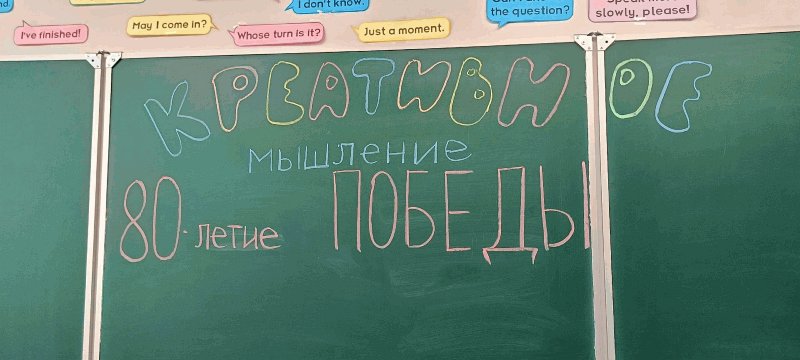 I don't know.
the question?
slowly, please!
I've finished!
May I come in?
Whose turn is it?
Just a moment.
КРЕАТИВНОЕ
мышление
80-летие ПОБЕДЫ